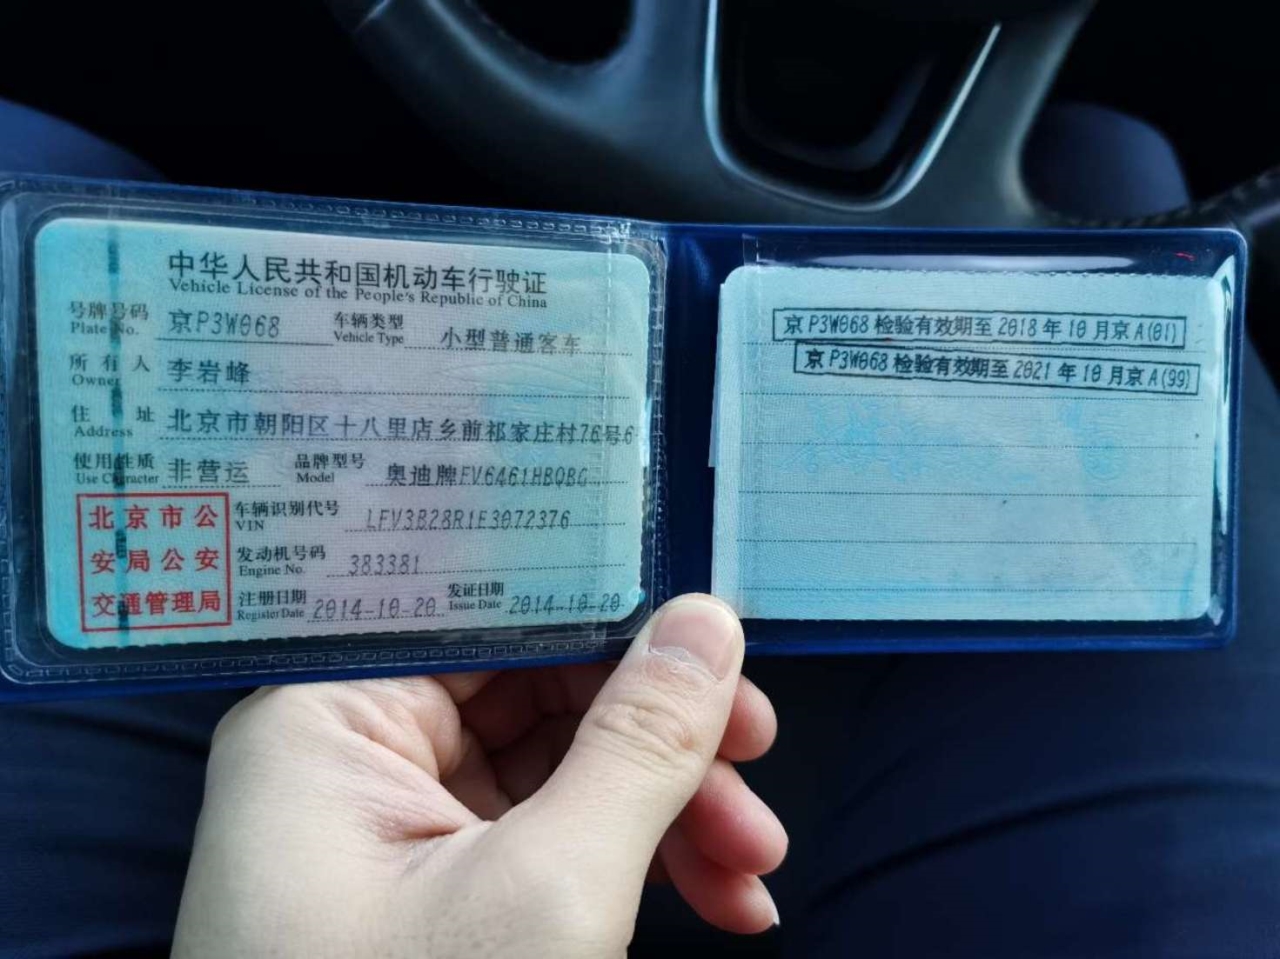 中华人民共和国机动车行驶证
Vehicle License of the People's Republic of China
号牌号码 京P3W068 车辆类型 小型普通客车
Plate No. Vehicle Type
所有人 李岩峰
Owner
住址 北京市朝阳区十八里店乡前祁家庄村76号6
Address
使用性质 非营运 品牌型号 奥迪牌FV6461HBQBG
Use Character Model
北京市公
安局公安
交通管理局
车辆识别代号 LFV3B28R1E3072376
VIN
发动机号码 383381
Engine No.
注册日期 2014-10-20 发证日期 2014-10-20
Register Date Issue Date
京P3W068检验有效期至2018年10月京A(01)
京P3W068检验有效期至2021年10月京A(99)